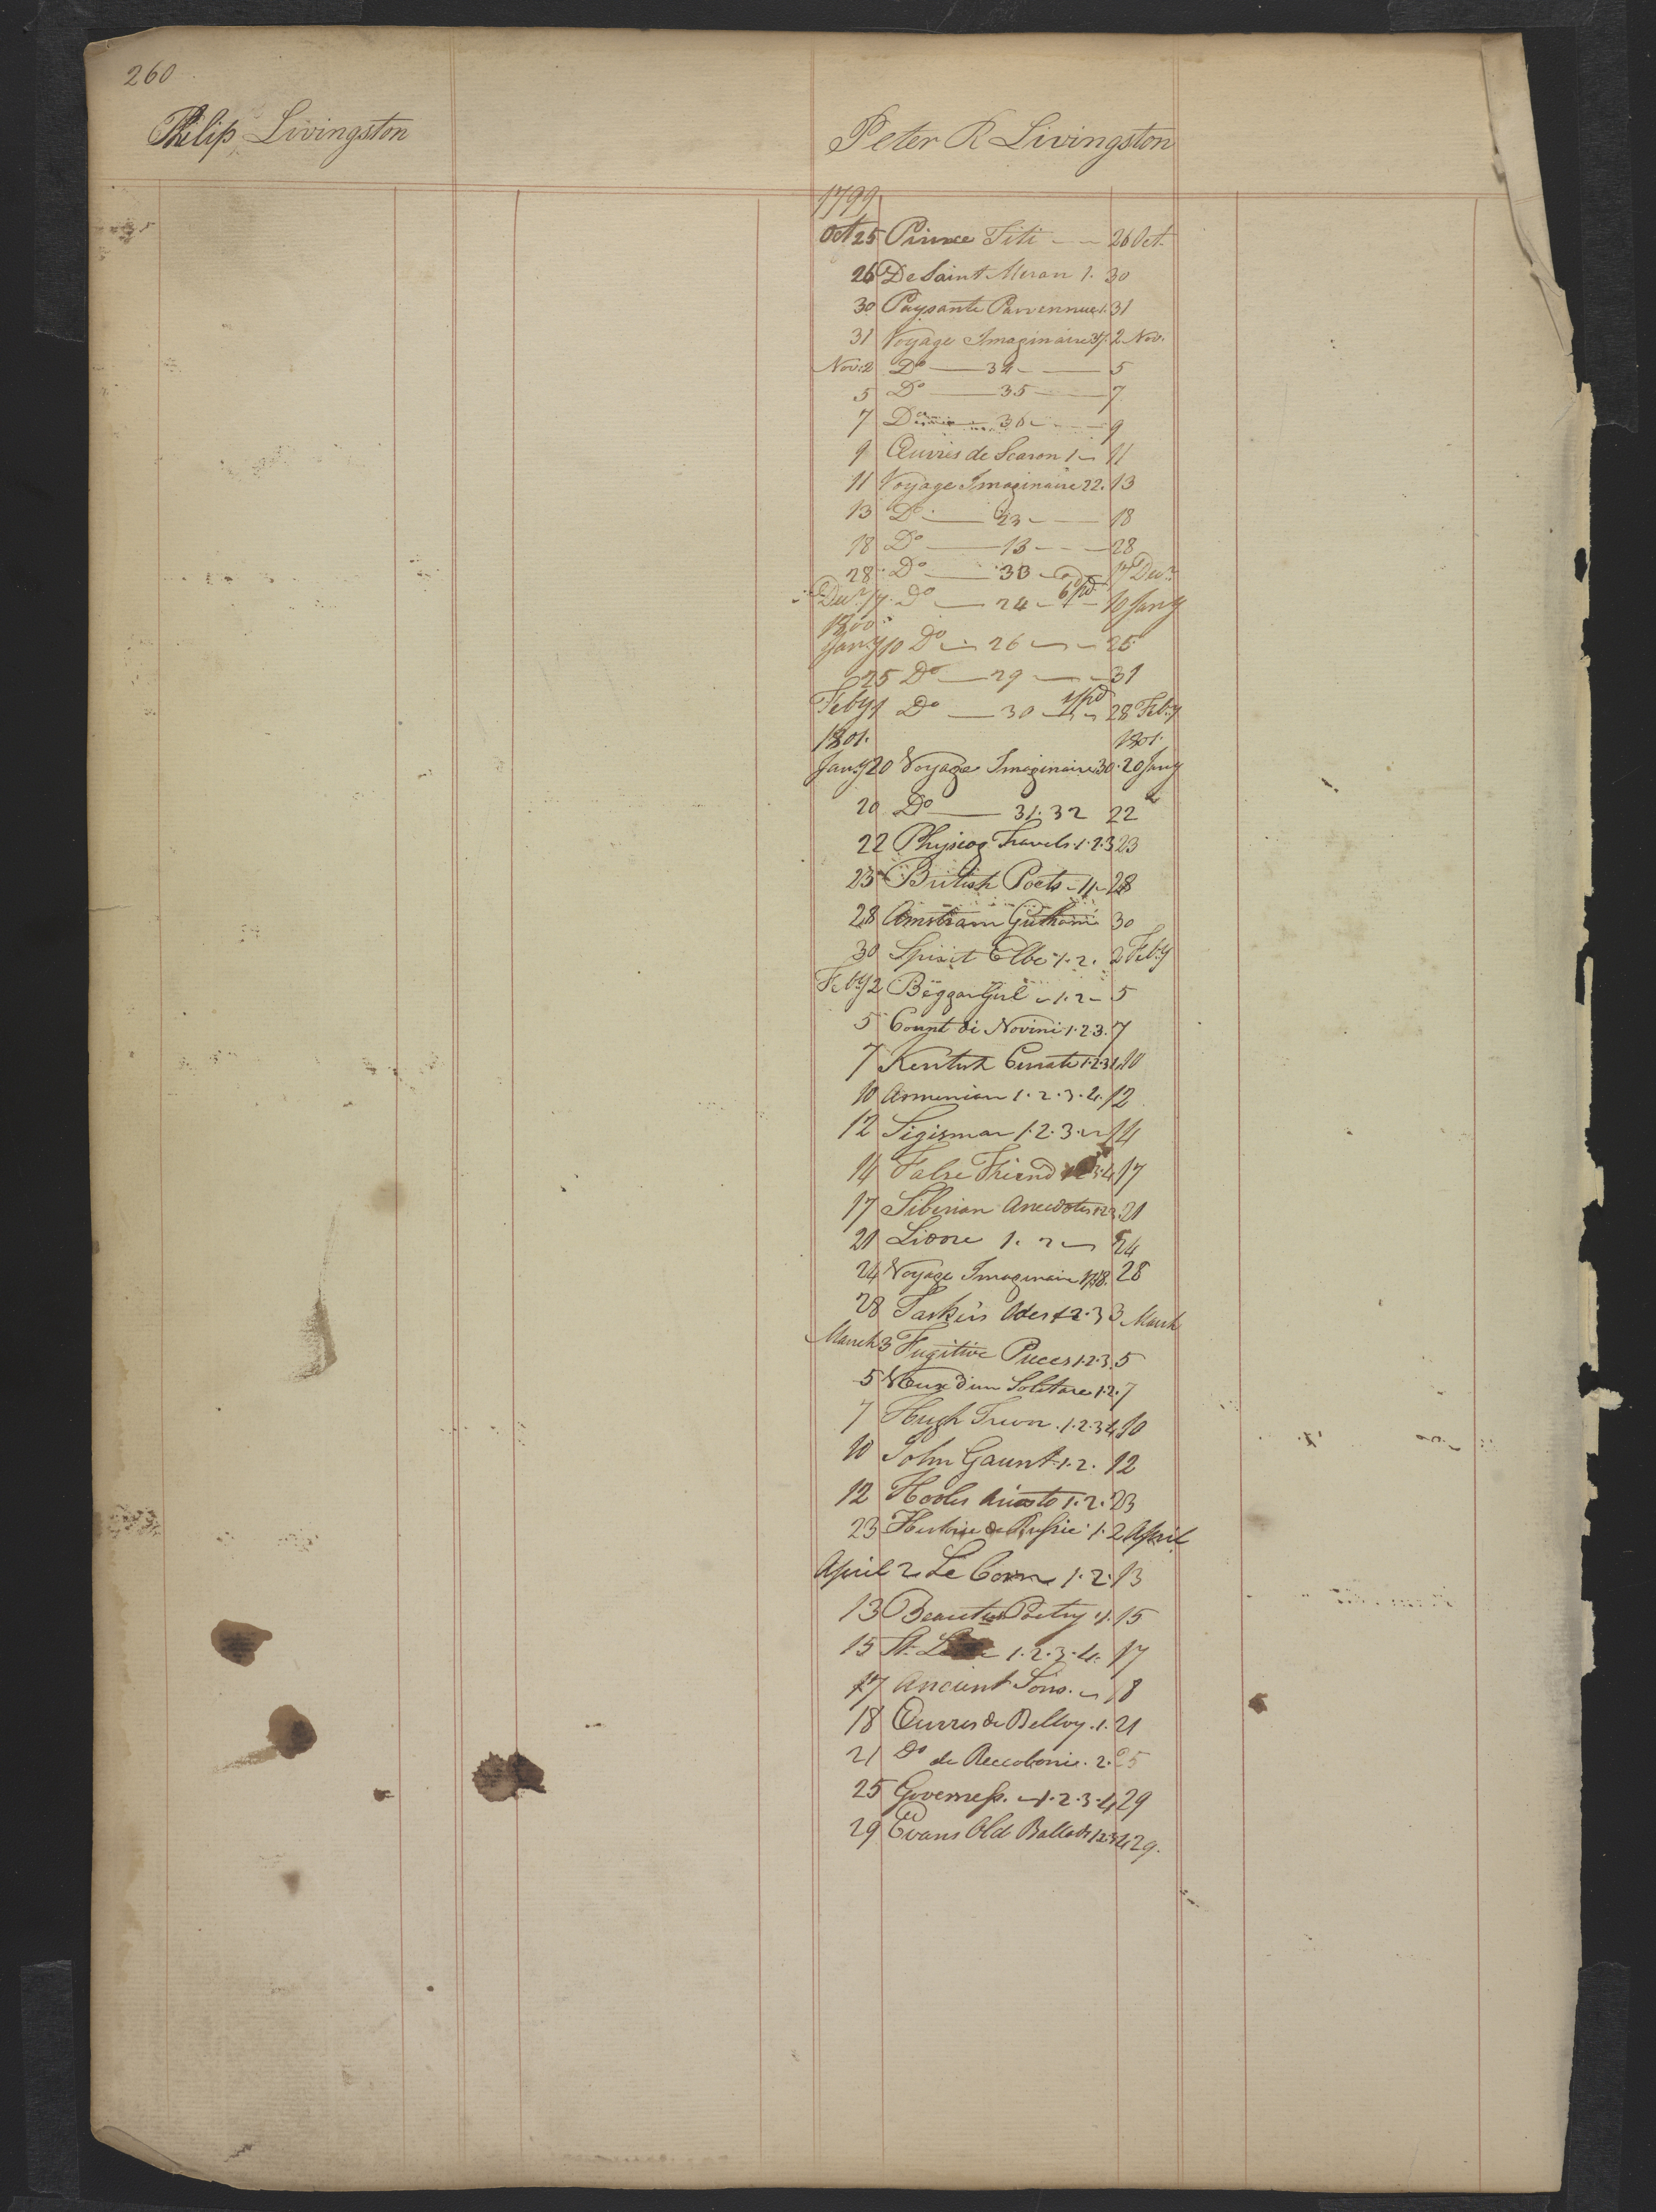 260
Philip Livingston
Peter R Livingston
1799
Oct 25 Prince Titi 26 Oct.
26 De Saint Meran 1. 30
30 Paysante Parvennue 1. 31
31 Voyage Imaginaire 2 Nov.
Nov: 2 Do 34 5
5 Do 35 7
7 Do 36 9
9 Œuvres de Scaron 1 11
11 Voyage Imaginaire 22. 13
13 Do 23 18
18 Do 13 28
28 Do 33 17 Decr
Decr 17 Do 24 6/pd 10 Jany
1800
Jany 10 Do 26 25
25 Do 29 31
Feby 1 Do 30 28 Feby
1801. 1801.
Jany 20 Voyage Imaginaire 30. 20 Jany
20 Do 31. 32 22
22 Physiog Travels. 1. 2. 3 23
23 British Poets 11 28
28 Amstram 30
30 Spirit Elbe 1. 2. 2 Feby
Feby 2 Beggar Girl 1. 2 5
5 Count di Novini 1. 2. 3. 7
7 Kentish Curate 1. 2. 3 4 10
10 Armenian 1. 2. 3. 4. 12
12 Sigismar 1. 2. 3. 14
14 False Friend 3. 4 17
17 Siberian Anecdotes 1 2 3. 21
21 Lidore 1. 2 24
24 Voyage Imaginaire 28
28 Taskers Odes 1 2. 3 3 March
March 3 Fugitive Pieces 1. 2. 3. 5
5 Vœux d'un Solitare 1. 2. 7
7 Hugh Trevor. 1. 2. 3 4 10
10 John Gaunt. 1. 2. 12
12 Hooles Ariosto 1. 2. 23
23 de Russie 1. 2 April
April 2 Le 1. 2. 13
13 Beauties Poetry 1. 15
15 St. 1. 2. 3. 4. 17
17 Ancient Sono. 18
18 Œuvres de Belloy. 1. 21
21 Do de Reccoboni. 2. 25
25 Governess. 1. 2. 3. 4 29
29 Evans Old Ballads 1 2 3 4 29.